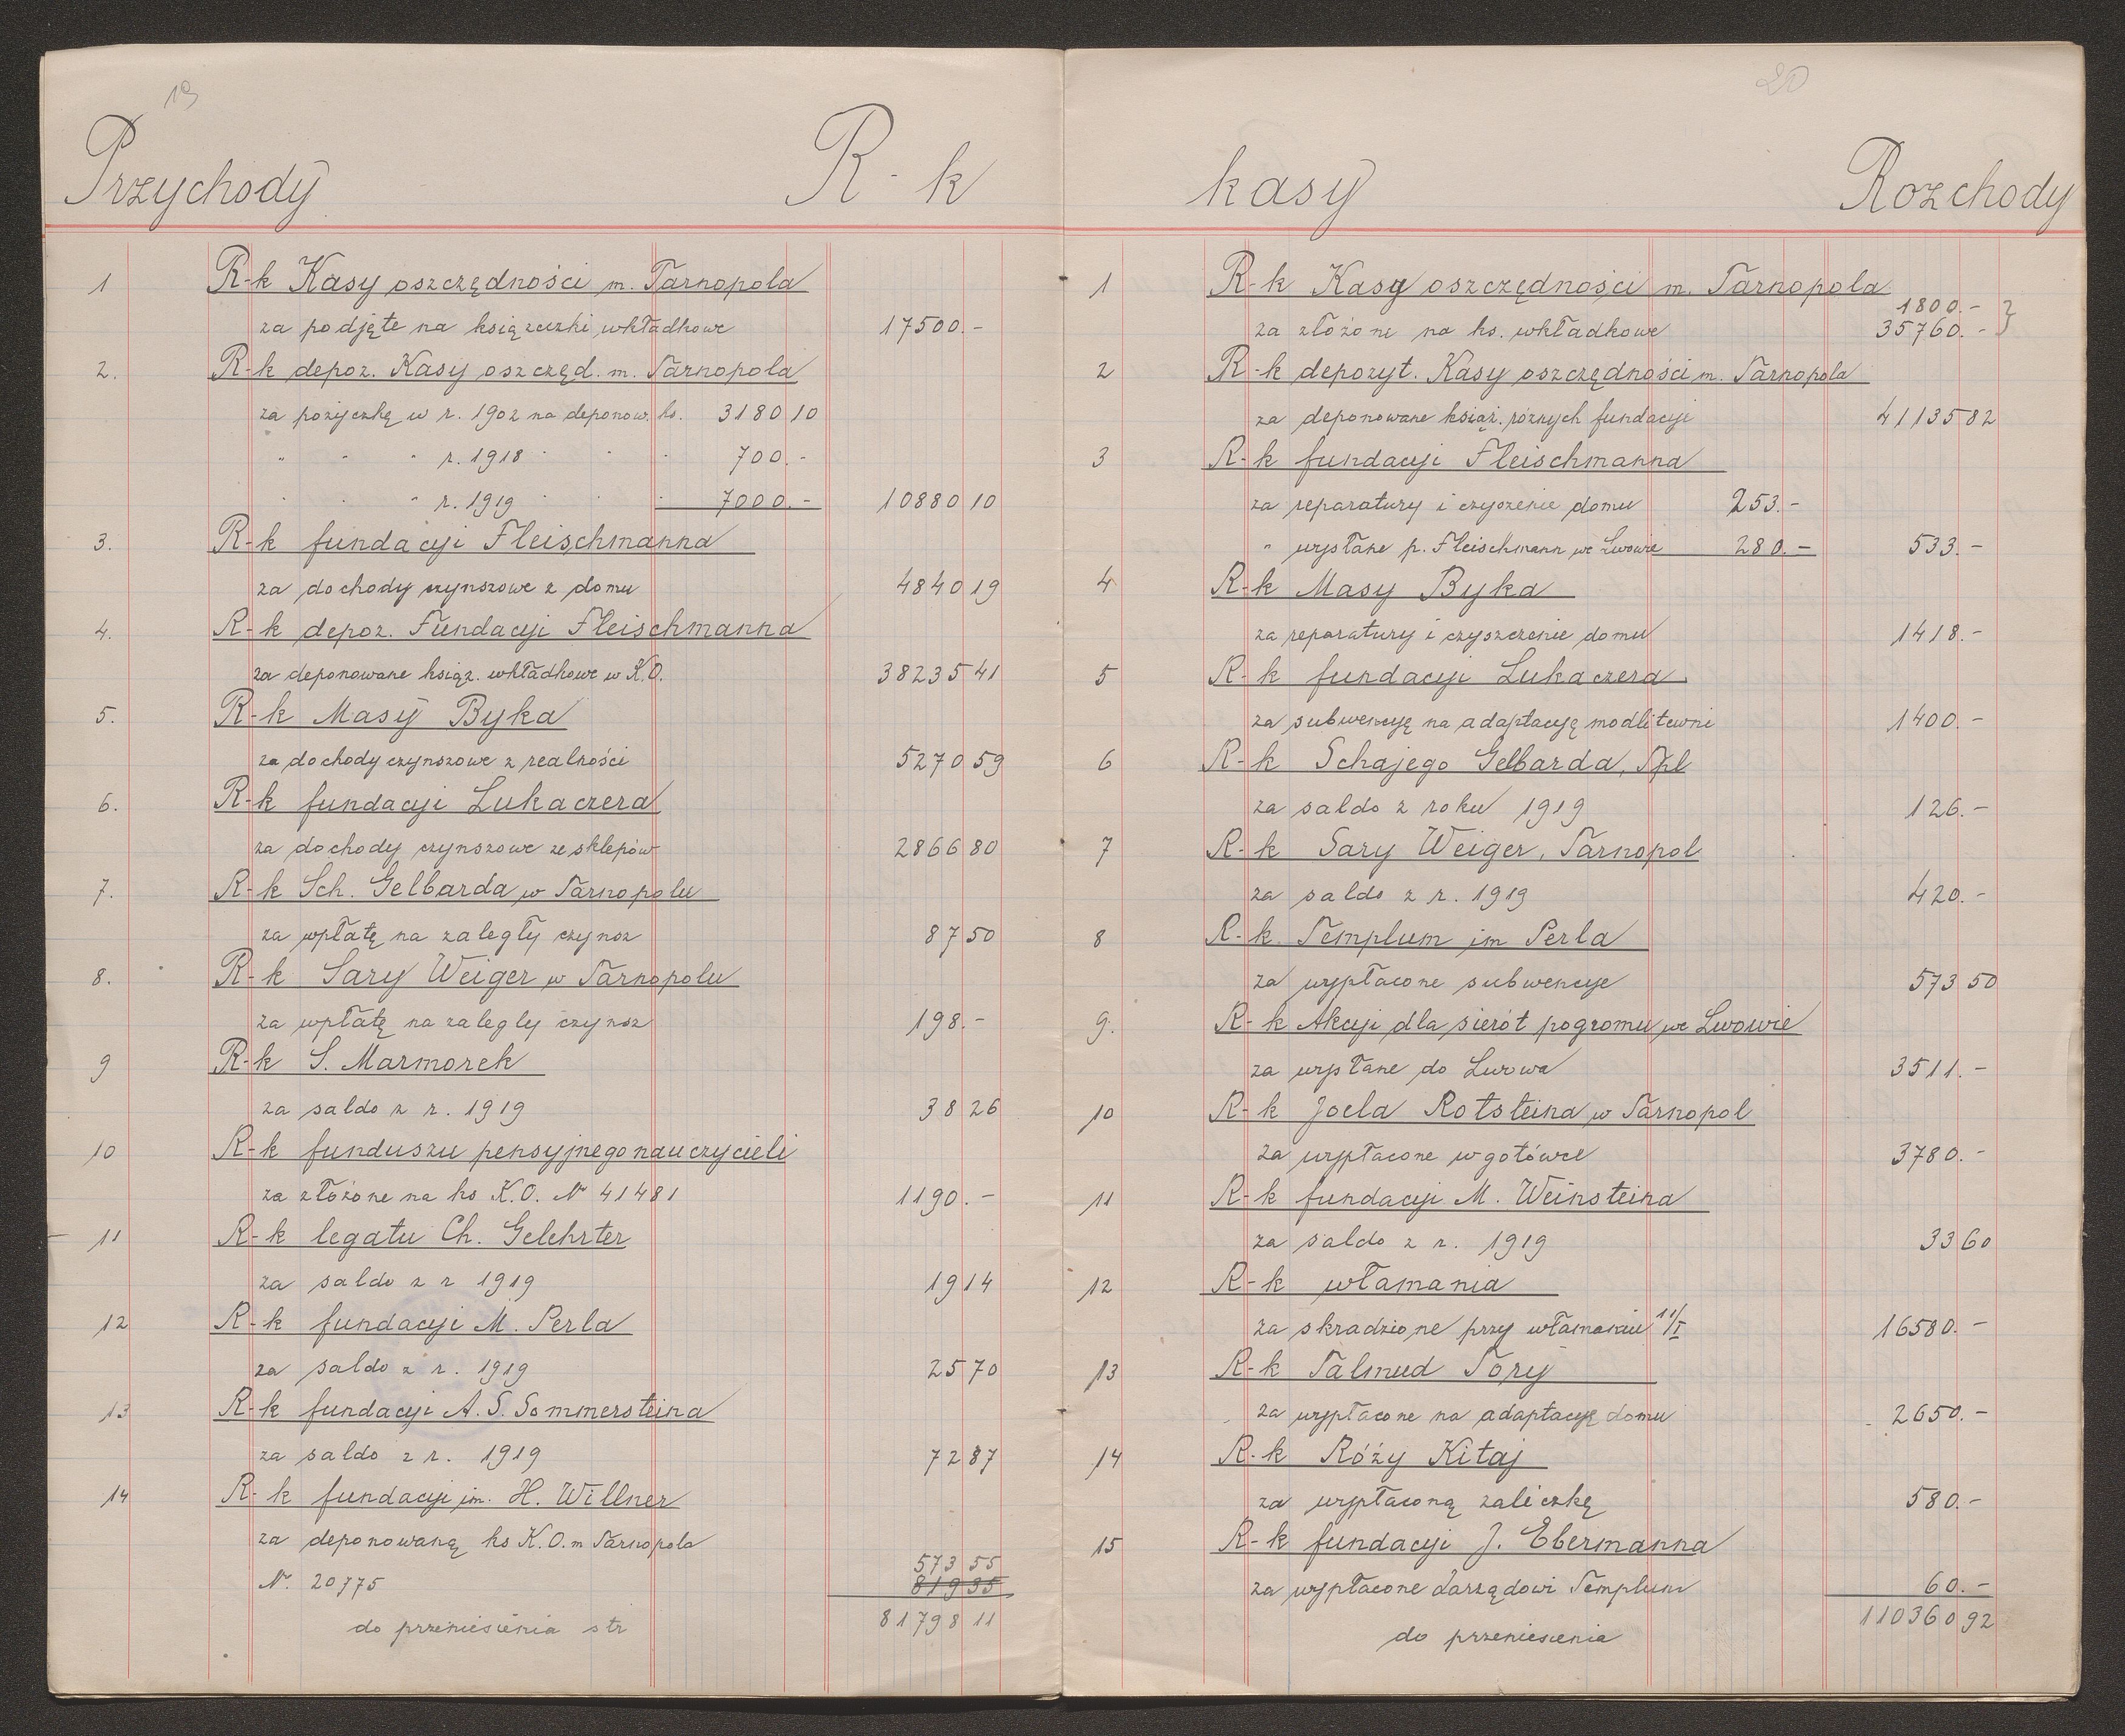 19
Przychody R-k
1 R-k Kasy oszczędności m. Tarnopola
za podjęte na książeczki wkładkowe 17500.-
2. R-k depoz. Kasy oszczęd. m. Tarnopola
za pożyczkę w r. 1902 na deponow. ks. 3180 10
" " " r. 1918 " " " 700.-
" " " r. 1919 " " " 7000.- 10880 10
3. R-k fundacyi Fleischmanna
za dochody czynszowe z domu 4840 19
4. R-k depoz. Fundacyi Fleischmanna
za deponowane książ. wkładkowe w K.O. 38235 41
5. R-k Masy Byka
za dochody czynszowe z realności 5270 59
6. R-k fundacyi Lukaczera
za dochody czynszowe ze sklepów 2866 80
7. R-k Sch. Gelbarda w Tarnopolu
za wpłatę na zaległy czynsz 87 50
8. R-k Sary Weiger w Tarnopolu
za wpłatę na zaległy czynsz 198.-
9 R-k S. Marmorek
za saldo z r. 1919 38 26
10 R-k funduszu pensyjnego nauczycieli
za złożone na ks K.O. Nr 41481 1190.-
11 R-k legatu Ch. Gelehrter
za saldo z r 1919 19 14
12 R-k fundacyi M. Perla
za saldo z r. 1919 25 70
13 R-k fundacyi A. S. Sommersteina
za saldo z r. 1919 72 87
14 R-k fundacyi im. H. Willner
za deponowaną ks K.O. m Tarnopola
573 55
Nr. 20775 819 35
do przeniesienia str 81798 11
20
kasy Rozchody
1 R-k Kasy oszczędności m. Tarnopola
1800.- }
za złożone na ks. wkładkowe 35760.-
2 R-k depozyt. Kasy oszczędności m. Tarnopola
za deponowane książ. różnych fundacyi 41135 82
3 R-k fundacyi Fleischmanna
za reparatury i czyszenie domu 253.-
" wysłane p. Fleischmann we Lwowie 280.- 533.-
4 R-k Masy Byka
za reparatury i czyszczenie domu 1418.-
5 R-k fundacyi Lukaczera
za subwencyę na adaptacyę modlitewni 1400.-
6 R-k Schajego Gelbarda, Tpl
za saldo z roku 1919 126.-
7 R-k Sary Weiger, Tarnopol
za saldo z r. 1919 420.-
8 R-k. Templum im Perla
za wypłacone subwencye 573 50
9. R-k Akcyi dla sierót pogromu we Lwowie
za wysłane do Lwowa 3511.-
10 R-k Joela Rotsteina w Tarnopol
za wypłacone w gotówce 3780.-
11 R-k fundacyi M. Weinsteina
za saldo z r. 1919 33 60
12 R-k włamania
za skradzione przy włamaniu 11/I 16580.-
13 R-k Talmud Tory
za wypłacone na adaptacyę domu 2650.-
14 R-k Róży Kitaj
za wypłaconą zaliczkę 580.-
15 R-k fundacyi J. Ebermanna
za wypłacone Zarządowi Templum 60.-
do przeniesienia 110360 92